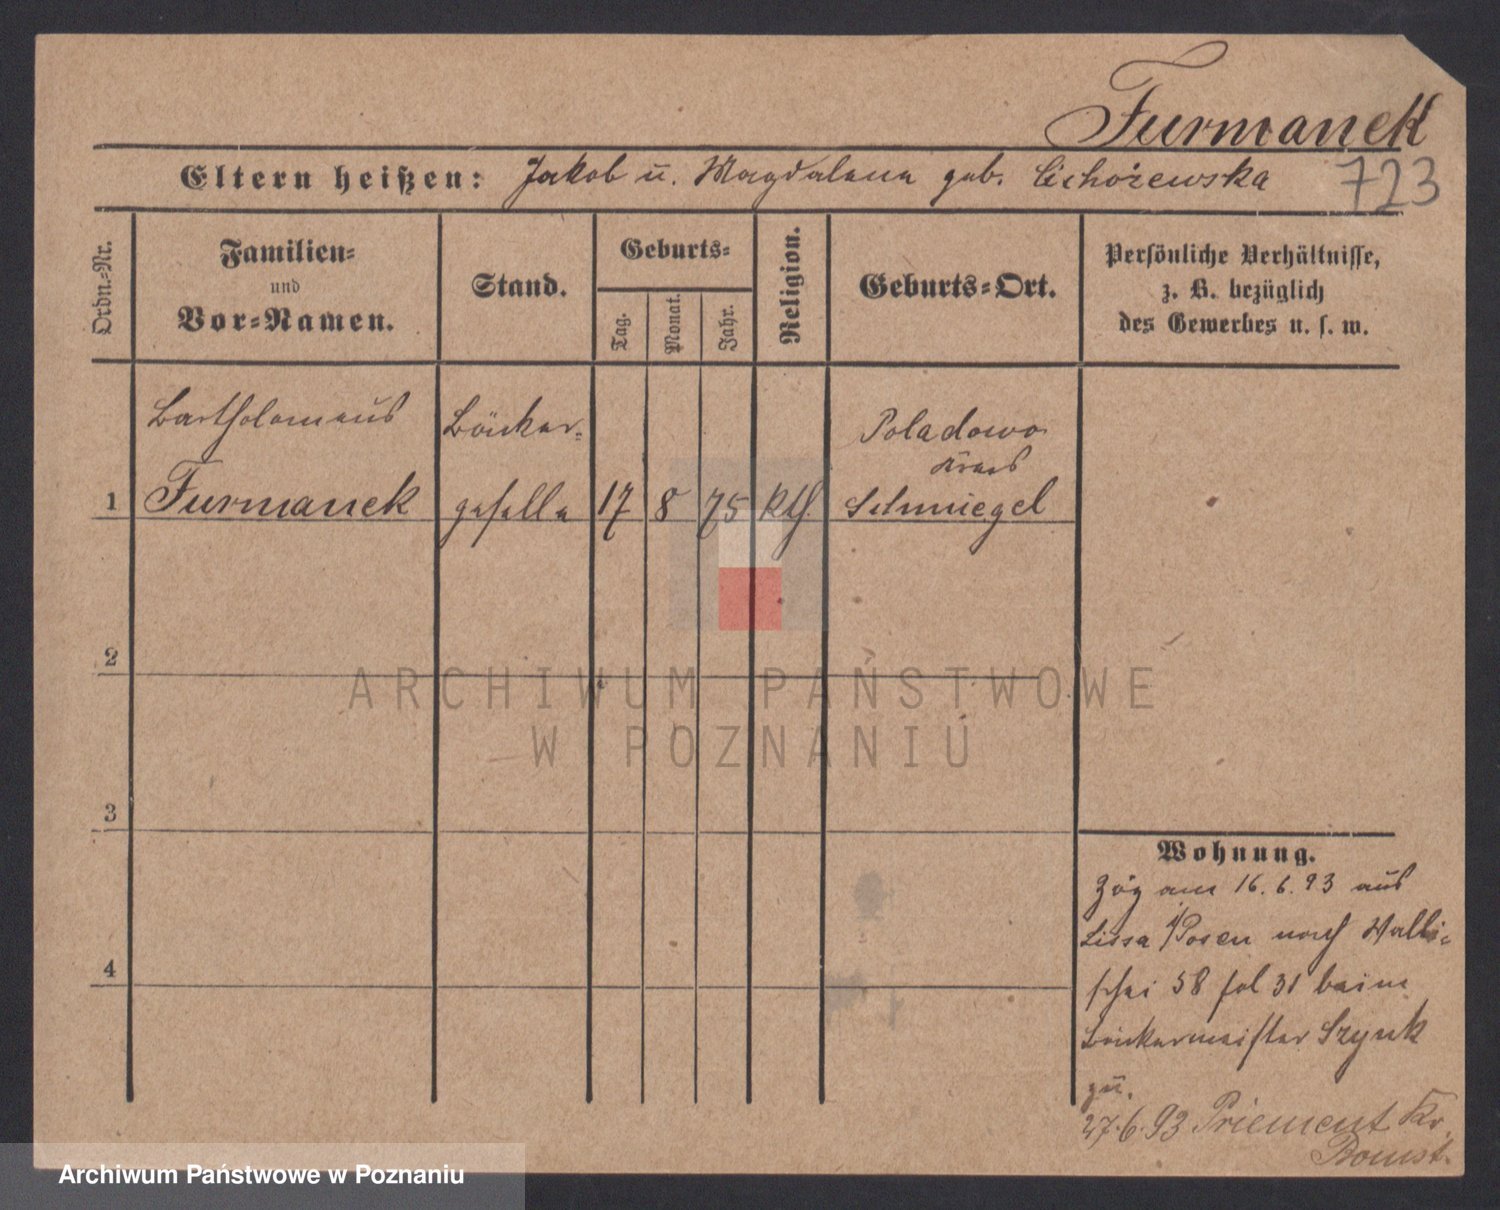 Furmanek
Eltern heißen: Jakob u. Magdalena geb. Cichożewska 723
Ordn.=Nr.
Familien=
und
Vor=Namen.
Stand.
Geburts=
Tag.
Monat.
Jahr.
Religion.
Geburts=Ort.
Persönliche Verhältnisse,
z. B. bezüglich
des Gewerbes u. s. w.
Bartholomeus Bäcker= Poladowo
Kreis
1 Furmanek geselle 17 8 75 kth. Schmiegel
2
3
4
Wohnung.
Zög am 16.6.93 aus
Lissa i/Posen nach Walli=
schei 58 fol 31 beim
Bäckermeister Szyuk
zu.
27.6.93 Priement Kr.
Bomst.
ARCHIWUM PAŃSTWOWE
W POZNANIU
Archiwum Państwowe w Poznaniu